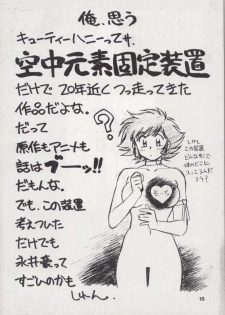 俺、思う
キューティーハニーってサ、
空中元素固定装置
だけで20年近くつっ走ってきた
作品だよな。
だって
原作もアニメも
話はブーッ!!
だもんな。
でも、この装置
考えついた
だけでも
永井豪って
すごいのかも
しゅん.
しかし
この装置
16